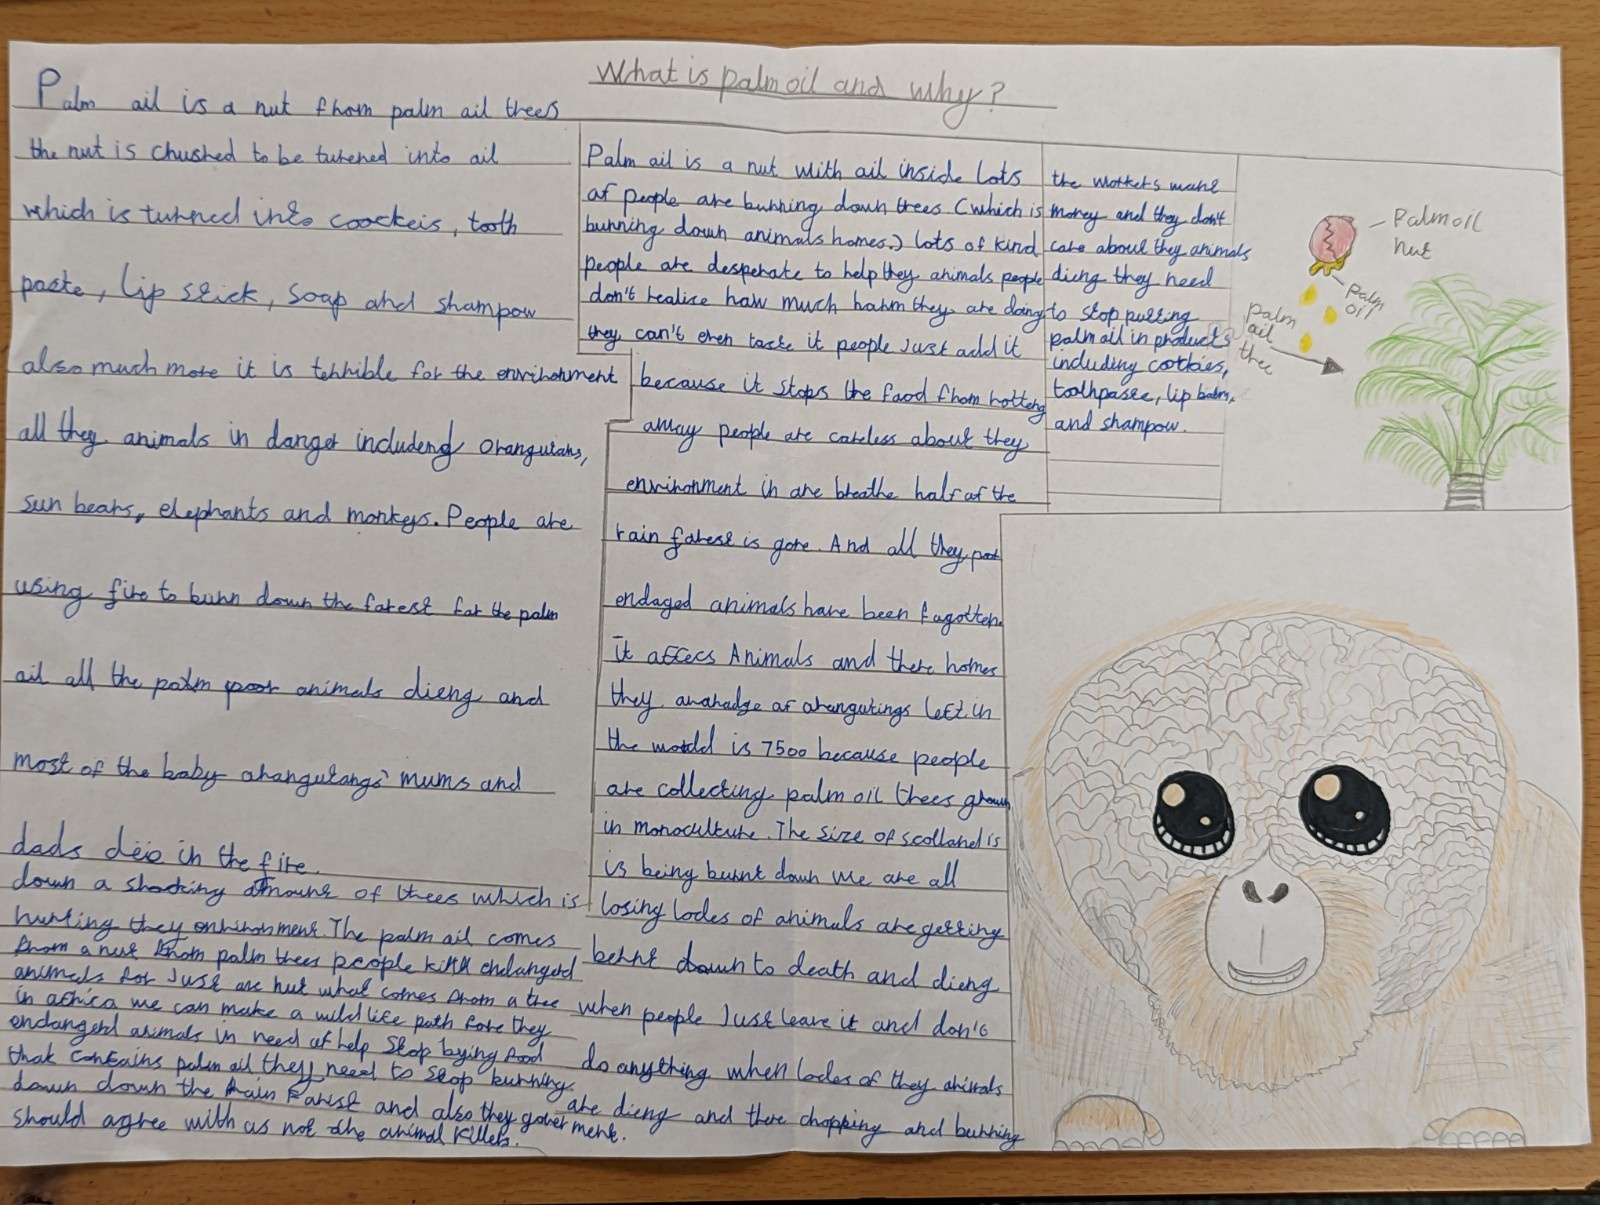 What is palm oil and why?
Palm ail is a nut fhom palm ail trees
the nut is chushed to be turened into ail
which is turned into coockeis, tooth
paste, Lip stick, soap and shampow
also much more it is tehhible for the envirhonment
all they animals in danger includeng Orangutans,
sun bears, elephants and monkeys. People are
using fire to buhn down the farest for the palm
ail all the palm poor animals dieng and
most of the baby ahangutangs' mums and
dads deie in the fire.
Palm ail is a nut with ail inside Lots
af people are buhning down trees. (which is
buhning down animals homes.) lots of kind
people are desperate to help they animals people
don't realise haw much harm they are doing
they can't even taste it people Just add it
because it stops the faod fhom hotteng
away people are careless about they
environment in are breathe half af the
rain farest is gone. And all they poot
endaged animals have been fagotten.
It affecs Animals and there homes
they avahadge af ahangutings left in
the world is 7500 because people
are collecting palm oil trees grown
in monoculture. The size of scotland is
is being burnt down we are all
losing lodes of animals are getting
behnt down to death and dieng
when people Just leave it and don't
do anything when lodes of they animals
are dieng and there chopping and buhning
down a shocking amount of trees which is
hurting they envirhonment. The palm ail comes
from a nut from palm trees people kill endanged
animals for Just are nut what comes from a tree
in africa we can make a wild life path fore they
endangerd animals in need of help Stop bying food
that contains palm ail they need to stop buhning
down down the rain Farist and also they goverment.
should agree with us not the animal killers.
the workers make
money and they don't
care about they animals
dieng they need
to stop putting
palm ail in products
including cookies,
toothpaste, lip balm,
and shampow.
Palm oil
nut
palm
oil
palm
ail
tree